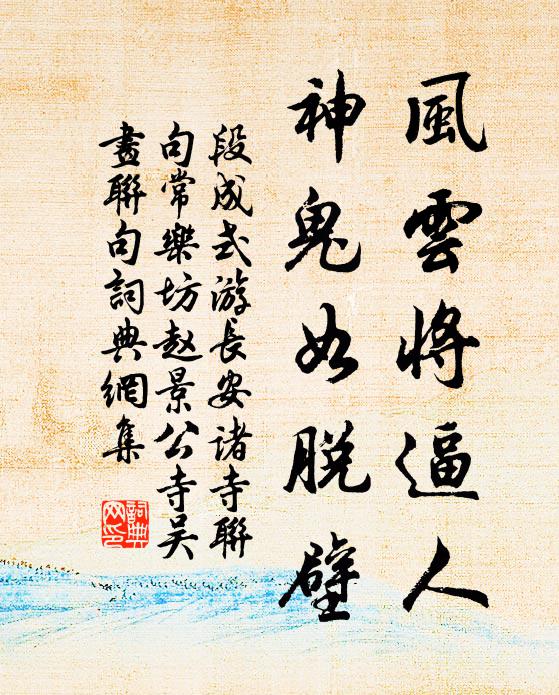 風雲將逼人
神鬼如脱壁
段成式游長安諸寺聯
句常樂坊赵景公寺吴
畫聯句詞典網集
詞典
网印